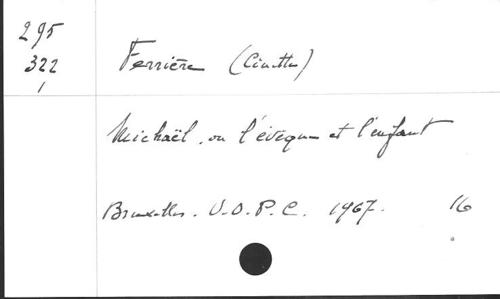 295
322
1
Ferrière (Cinette)
Michaël ou l'évêque et l'enfant
Bruxelles. U.O.P.C. 1967. 16